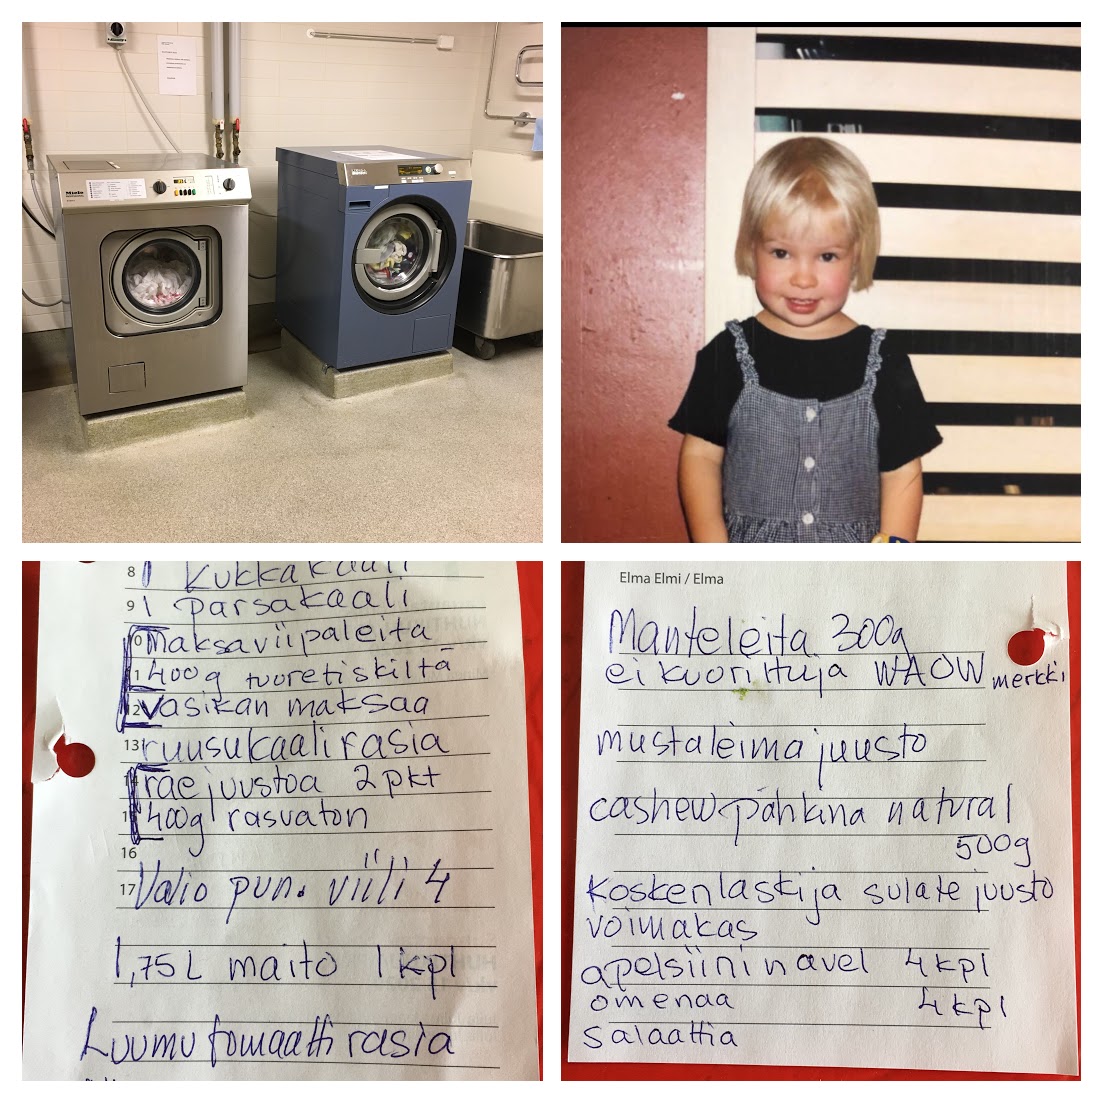 Miele
8 1 kukkakaali
9 1 parsakaali
maksaviipaleita
400g tuoretiskiltä
12 vasikan maksaa
13 ruusukaalirasia
raejuustoa 2 pkt
400g rasvaton
16
17 Valio pun. viili 4
1,75 L maito 1 kpl
Luumutomaattirasia
Elma Elmi / Elma
Manteleita 300g
ei kuorittuja WAOW merkki
mustaleima juusto
cashewpähkinä natural
500g
Koskenlaskija sulatejuusto
voimakas
apelsiini navel 4 kpl
omenaa 4 kpl
salaattia